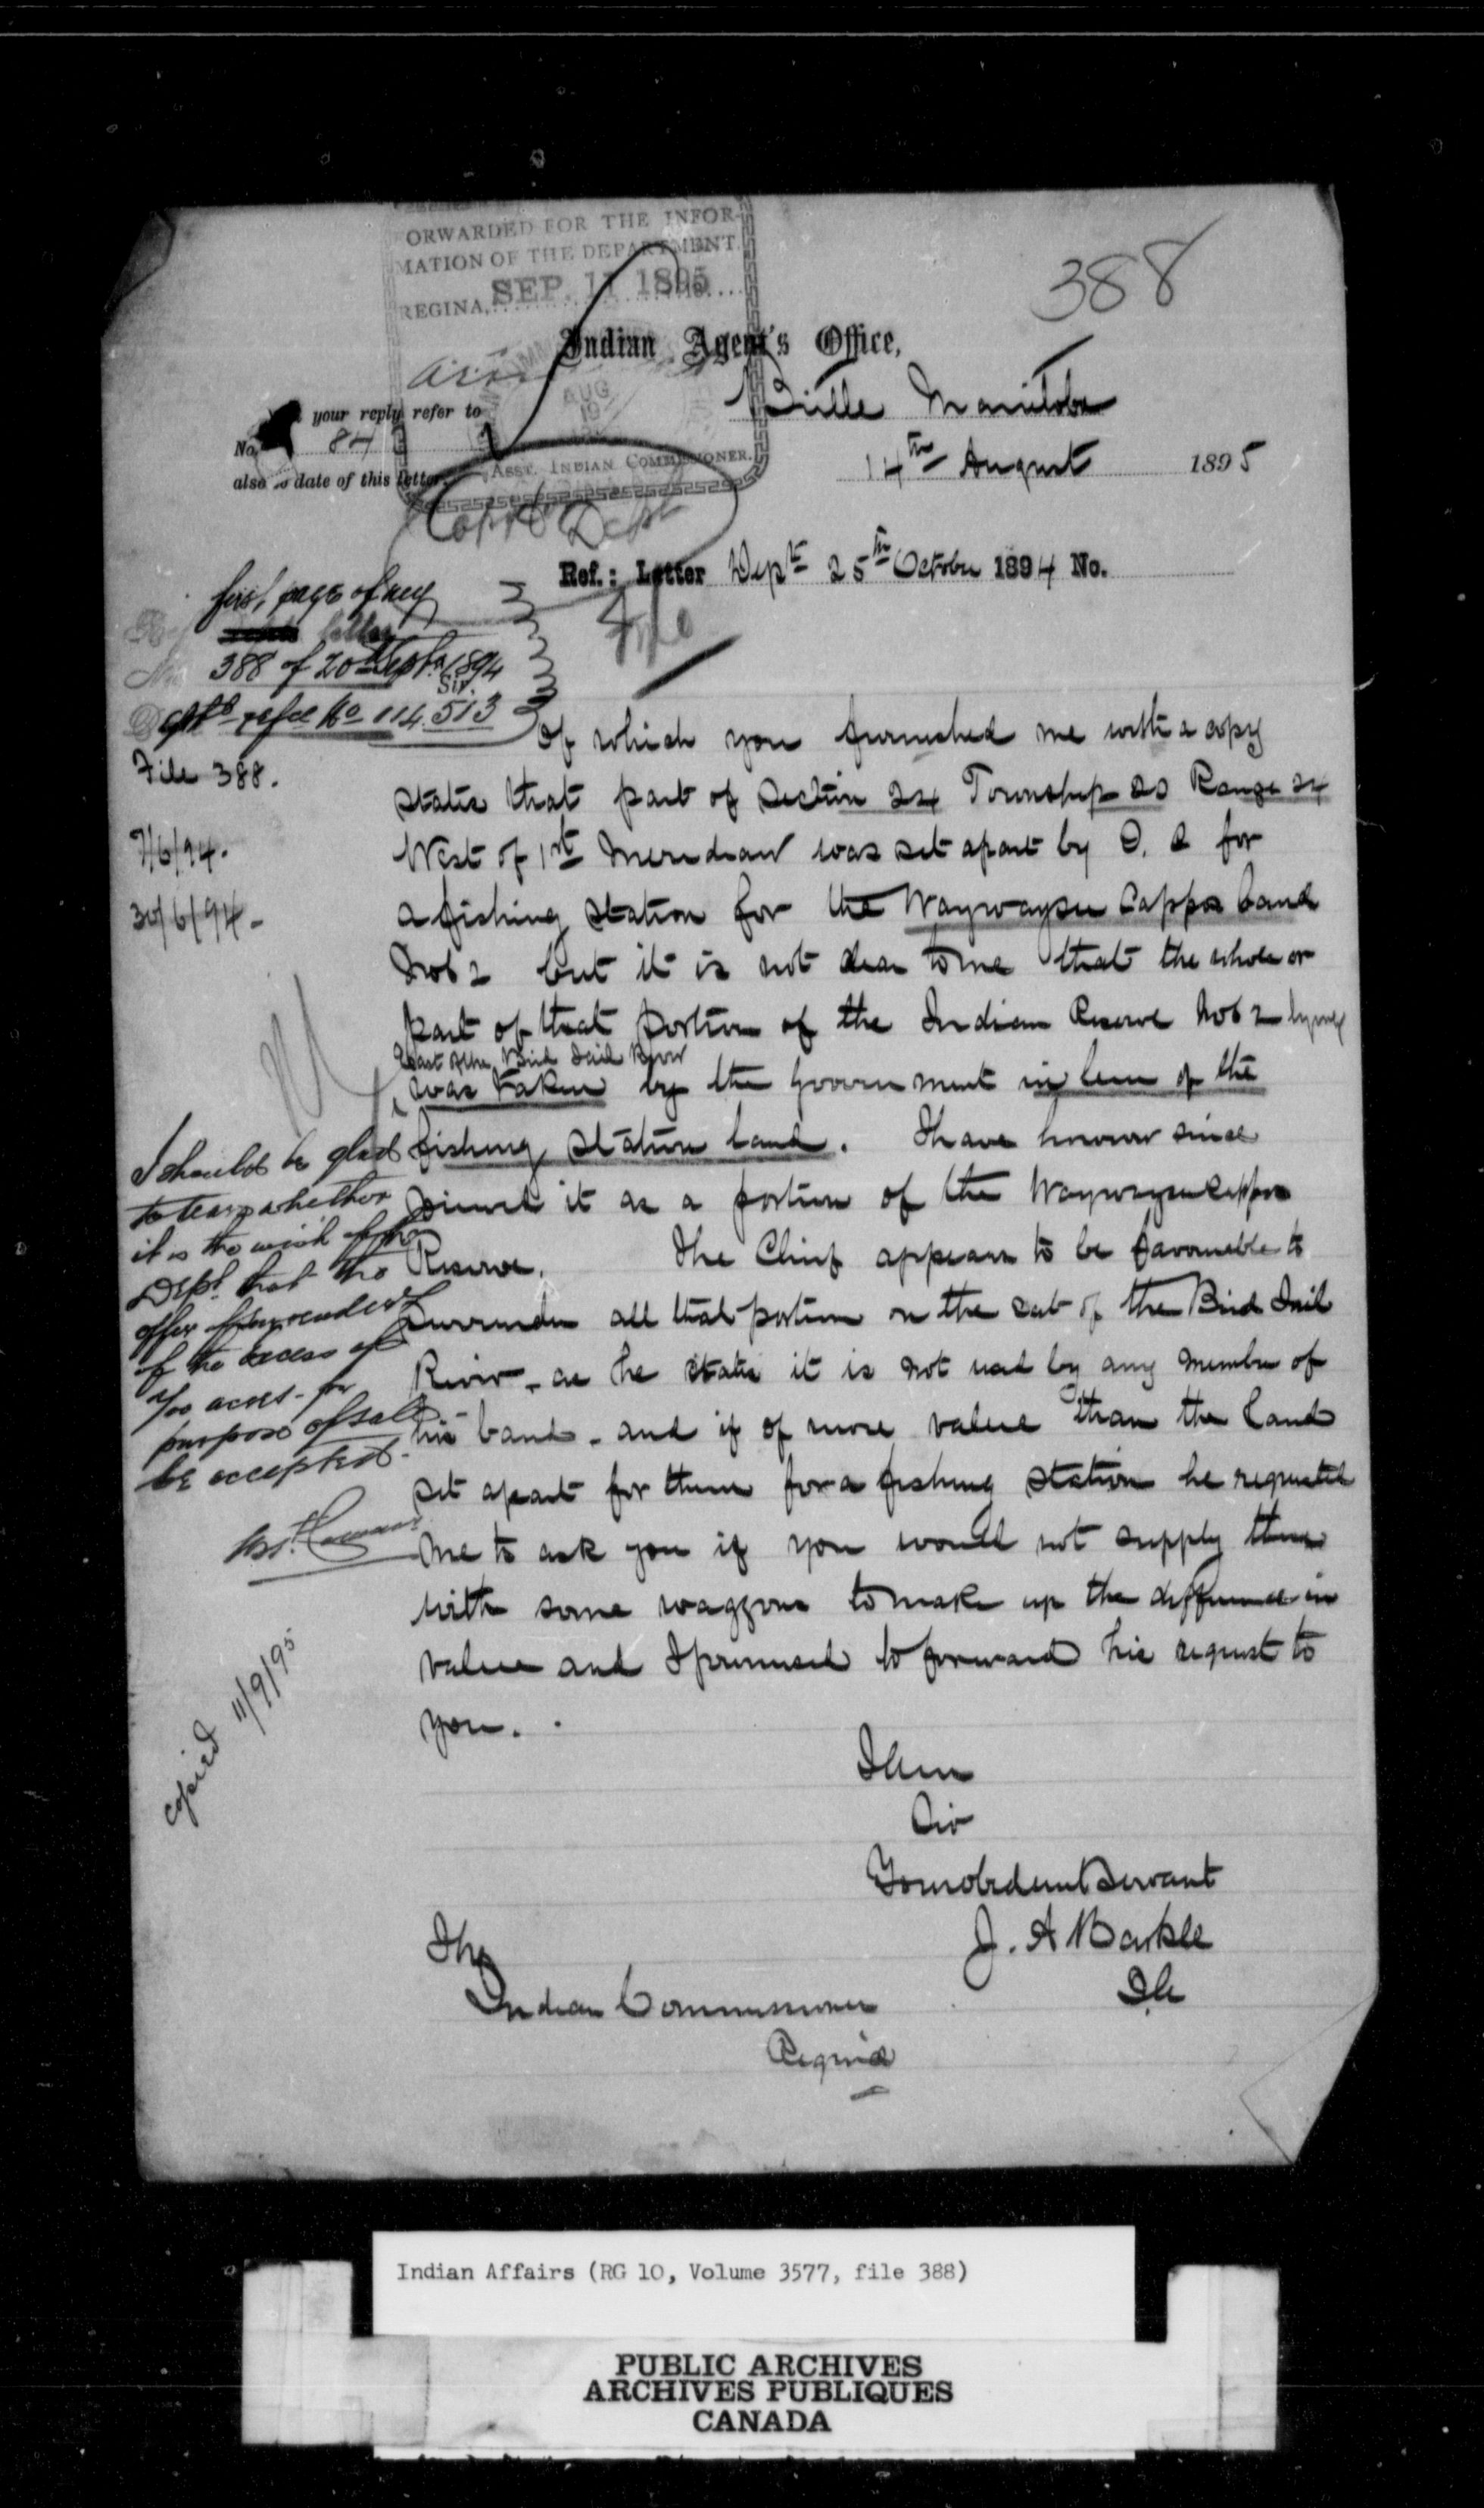 ORWARDED FOR THE INFOR-
MATION OF THE DEPARTMENT.
REGINA, SEP. 11 1895
388
Indian Agent's Office,
Birtle Manitoba
14th August 1895
your reply refer to
No. 84
also to date of this letter.
AUG
19
ASST. INDIAN COMMISSIONER.
Copy to Dept
Ref.: Letter Dept 25th October 1894 No.
File
first page of my
letter
388 of 20th Septr. 1894
Sir.
refce No 114.513
File 388.
7/6/94.
30/6/94.
Of which you furnished me with a copy
states that part of Section 24 Township 20 Range 24
West of 1st Meridian was set apart by O. C for
a fishing station for the Waywaysee Cappo band
No 62 but it is not clear to me that the whole or
part of that portion of the Indian Reserve No 62 lying
East of the Bird Tail River
was taken by the Government in lieu of the
fishing station land. I have however since
viewed it as a portion of the Waywayseecappo
Reserve. The Chief appears to be favourable to
surrender all that portion on the east of the Bird Tail
River - as he states it is not used by any member of
his band - and if of more value than the land
set apart for them for a fishing station he requested
me to ask you if you would not supply them
with some waggons to make up the difference in
value and I promised to forward his request to
you.
I should be glad
to learn whether
it is the wish of the
Dept. that the
offer of surrender
of the excess of
acres - for
purpose of sale
be accepted.
copied 11/9/95
I am
Sir
Your obedient Servant
J. A Markle
I.A
The
Indian Commissioner
Regina
Indian Affairs (RG 10, Volume 3577, file 388)
PUBLIC ARCHIVES
ARCHIVES PUBLIQUES
CANADA